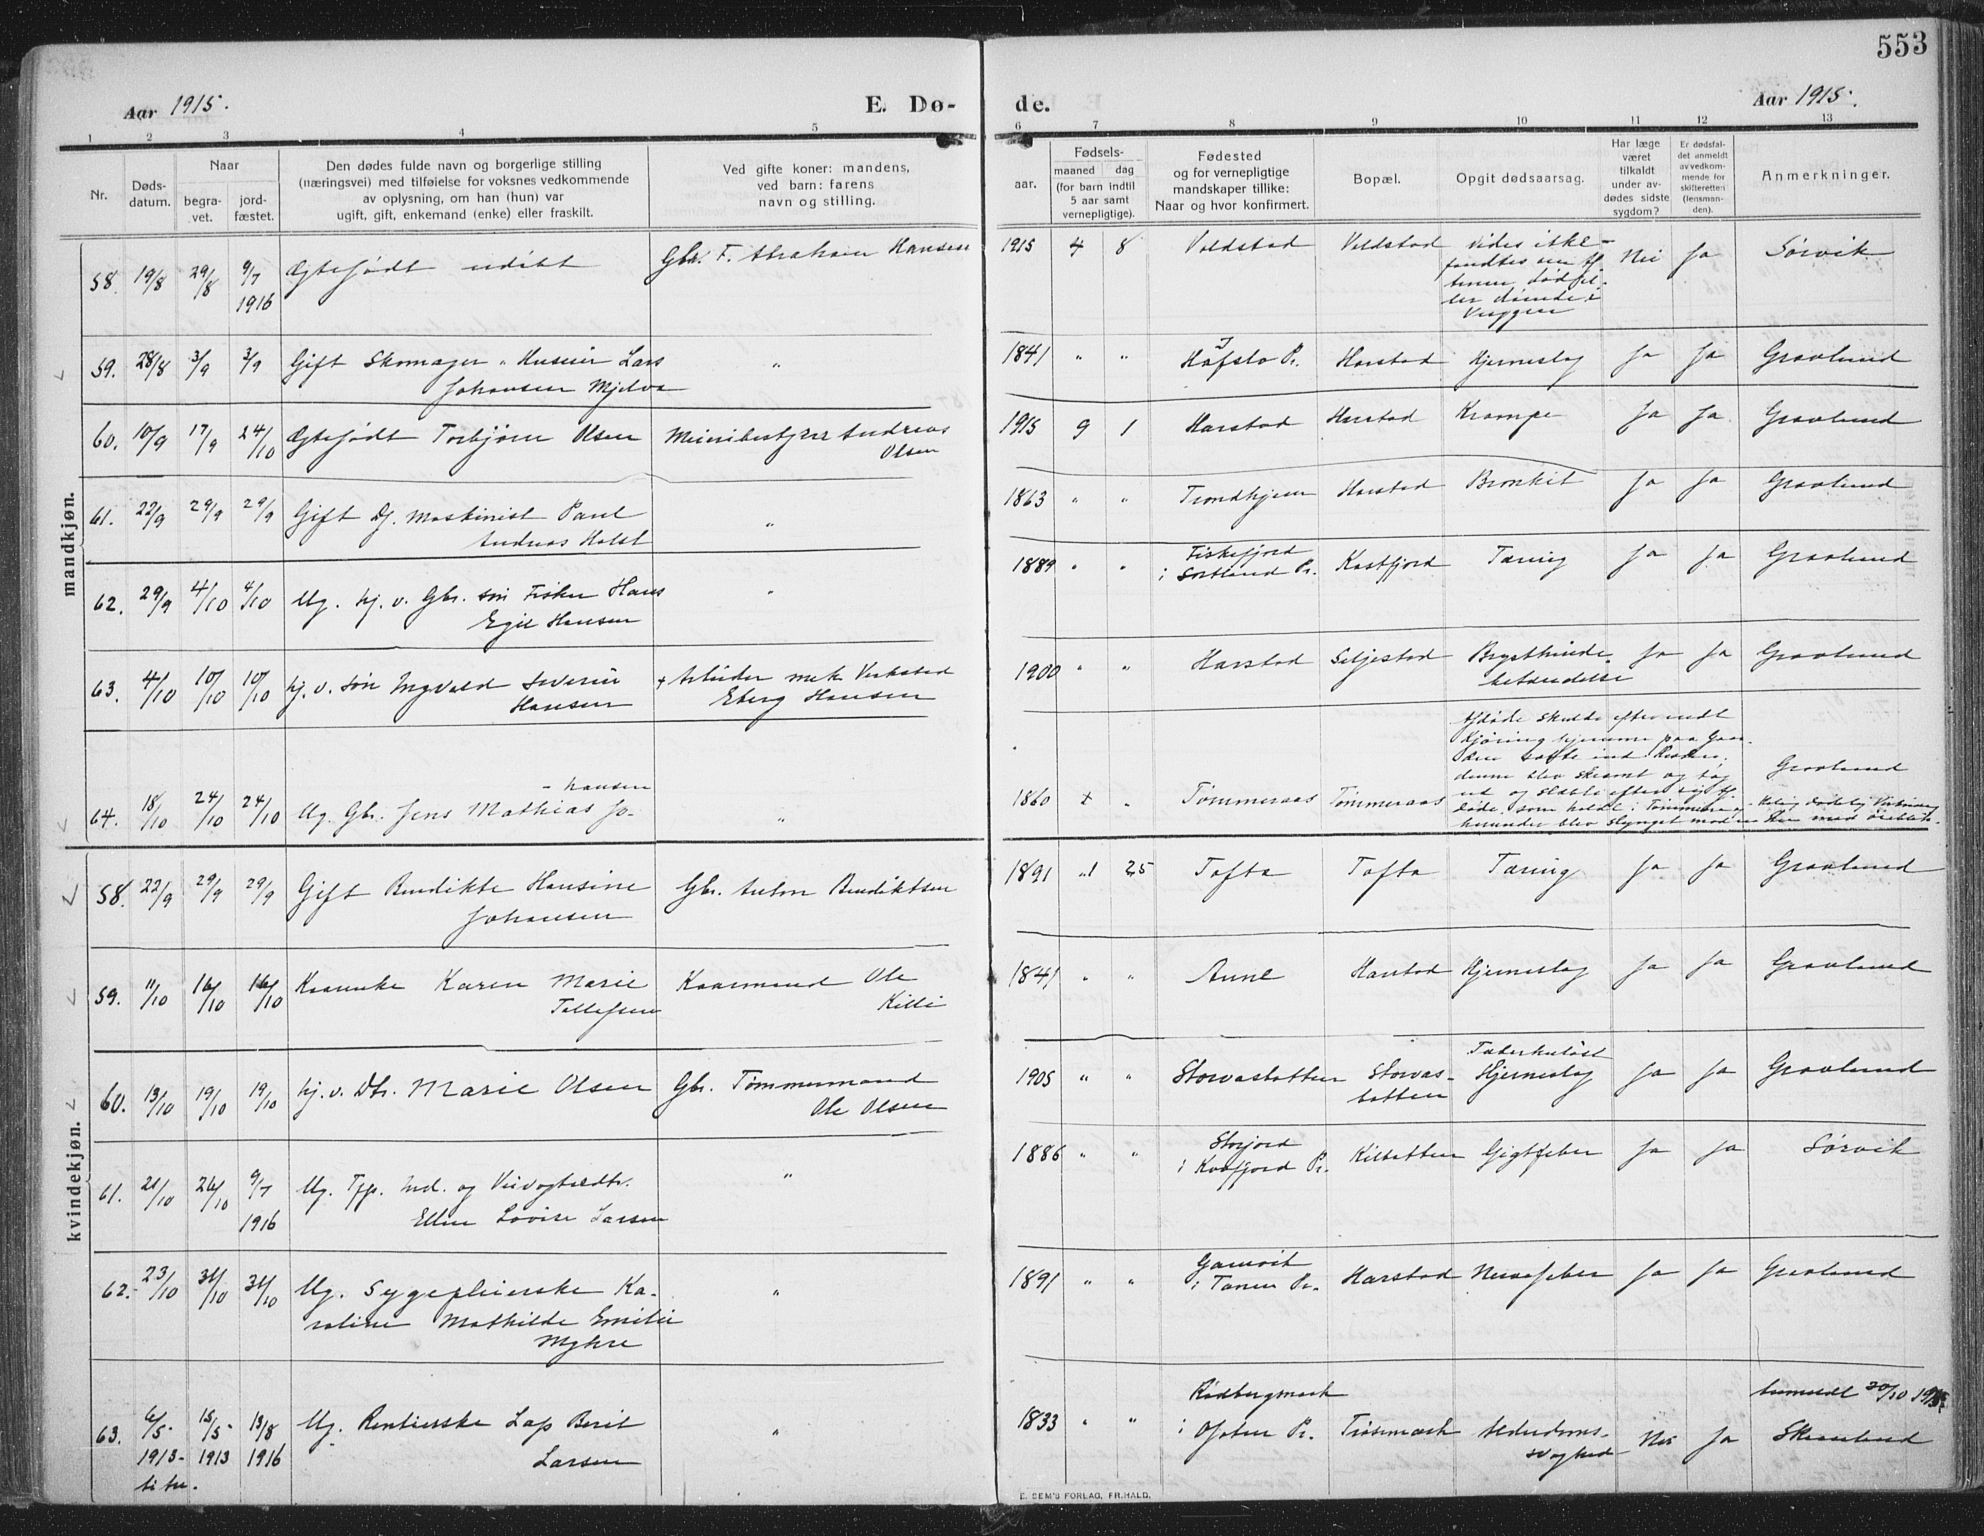 553
Aar 1915.
E. Dø-
de.
Aar 1915.
1 2 3 4 5 6 7 8 9 10 11 12 13
Nr.
Døds-
datum.
Naar
begra-
vet.
jord-
fæstet.
Den dødes fulde navn og borgerlige stilling
(næringsvei) med tilføielse for voksnes vedkommende
av oplysning, om han (hun) var
ugift, gift, enkemand (enke) eller fraskilt.
Ved gifte koner: mandens,
ved barn: farens
navn og stilling.
Fødsels-
aar.
maaned dag
(for barn indtil
5 aar samt
vernepligtige).
Fødested
og for vernepligtige
mandskaper tillike:
Naar og hvor konfirmert.
Bopæl.
Opgit dødsaarsag.
Har læge
været
tilkaldt
under av-
dødes sidste
sygdom?
Er dødsfal-
det anmeldt
av vedkom-
mende for
skifteretten
(lensman-
den).
Anmerkninger.
mandkjøn.
58. 19/8 29/8 9/7 1916 Ægtefødt udøbt Gbr. F. Abraham Hansen 1915 4 8 Voldstad Voldstad vides ikke - fandtes død Vuggen Nei Ja Sørvik
59. 28/8 3/9 3/9 Gift Skomager Lars
Johansen Mjelva " 1841 " " Hafslo Pr. Harstad Hjerneslag Ja Ja Gravlund
60. 10/9 17/9 24/10 Ægtefødt Torbjørn Olsen Meieribestyrer Andreas
Olsen 1915 9 1 Harstad Harstad Krampe Ja Ja Gravlund
61. 22/9 29/9 29/9 Gift Maskinist Paul
Andreas Holst " 1863 " " Trondhjem Harstad Bronkit Ja Ja Gravlund
62. 29/9 4/10 4/10 Ug. hj. v. Gbr. søn Fisker Hans
Egil Hansen " 1889 " " Fiskefjord
i Sortland Pr. Kasfjord Tæring Ja Ja Gravlund
63. 4/10 10/10 10/10 hj. v. søn Ingvald Severin
Hansen + Arbeider mek Verksted
Eberg Hansen 1900 " " Harstad Seljestad Brysthinde-
betændelse Ja Ja Gravlund
64. 18/10 24/10 24/10 Ug. Gbr. Jens Mathias Jo-
hansen " 1860 + " Tømmeraas Tømmeraas Afdøde skulde efter endt
Kjøring hjemme paa Gaar-
den sætte ind Hesten,
denne blev skræmt og tog
ut og slæbte efter sig Af-
døde, som holdt i Tømmene og
herunder blev slynget mod Gravlund
kvindekjøn.
58. 22/9 29/9 29/9 Gift Bendikte Hansine
Johansen Gbr. Anton Bendiktsen 1891 1 25 Tofta Tofta Tæring Ja Ja Gravlund
59. 11/10 16/10 16/10 Kaarenke Karen Marie
Tollefsen Kaarmand Ole
Killi 1841 " " Aune Harstad Hjerneslag Ja Ja Gravlund
60. 13/10 19/10 19/10 hj. v. Dtr. Marie Olsen Gbr. Tømmermand
Ole Olsen 1905 " " Storvasbotten Storvas-
botten Tuberkuløst
Hjerneslag Ja Ja Gravlund
61. 21/10 26/10 9/7
1916 Ug. Tjp. Ind. og
Ellen Lovise Larsen " 1886 " " Storjord
i Kvæfjord Pr. Kilbotten Gigtfeber Ja Ja Sørvik
62. 23/10 31/10 31/10 Ug. Sygepleierske Ka-
roline Mathilde Emilie
Myhre " 1891 " " Gamvik
i Tanen Pr. Harstad Nervefeber Ja Ja Gravlund
63. 6/5
1913 15/5
1913 13/8
1916 Ug. Rentierske Lap Berit
Larsen " 1833 " " Rødbergmark
i Ofoten Pr. Alderdoms-
svaghed Nei Ja anmeldt 20/10 1915
Skaanland
E. SEM'S FORLAG, FR.HALD.